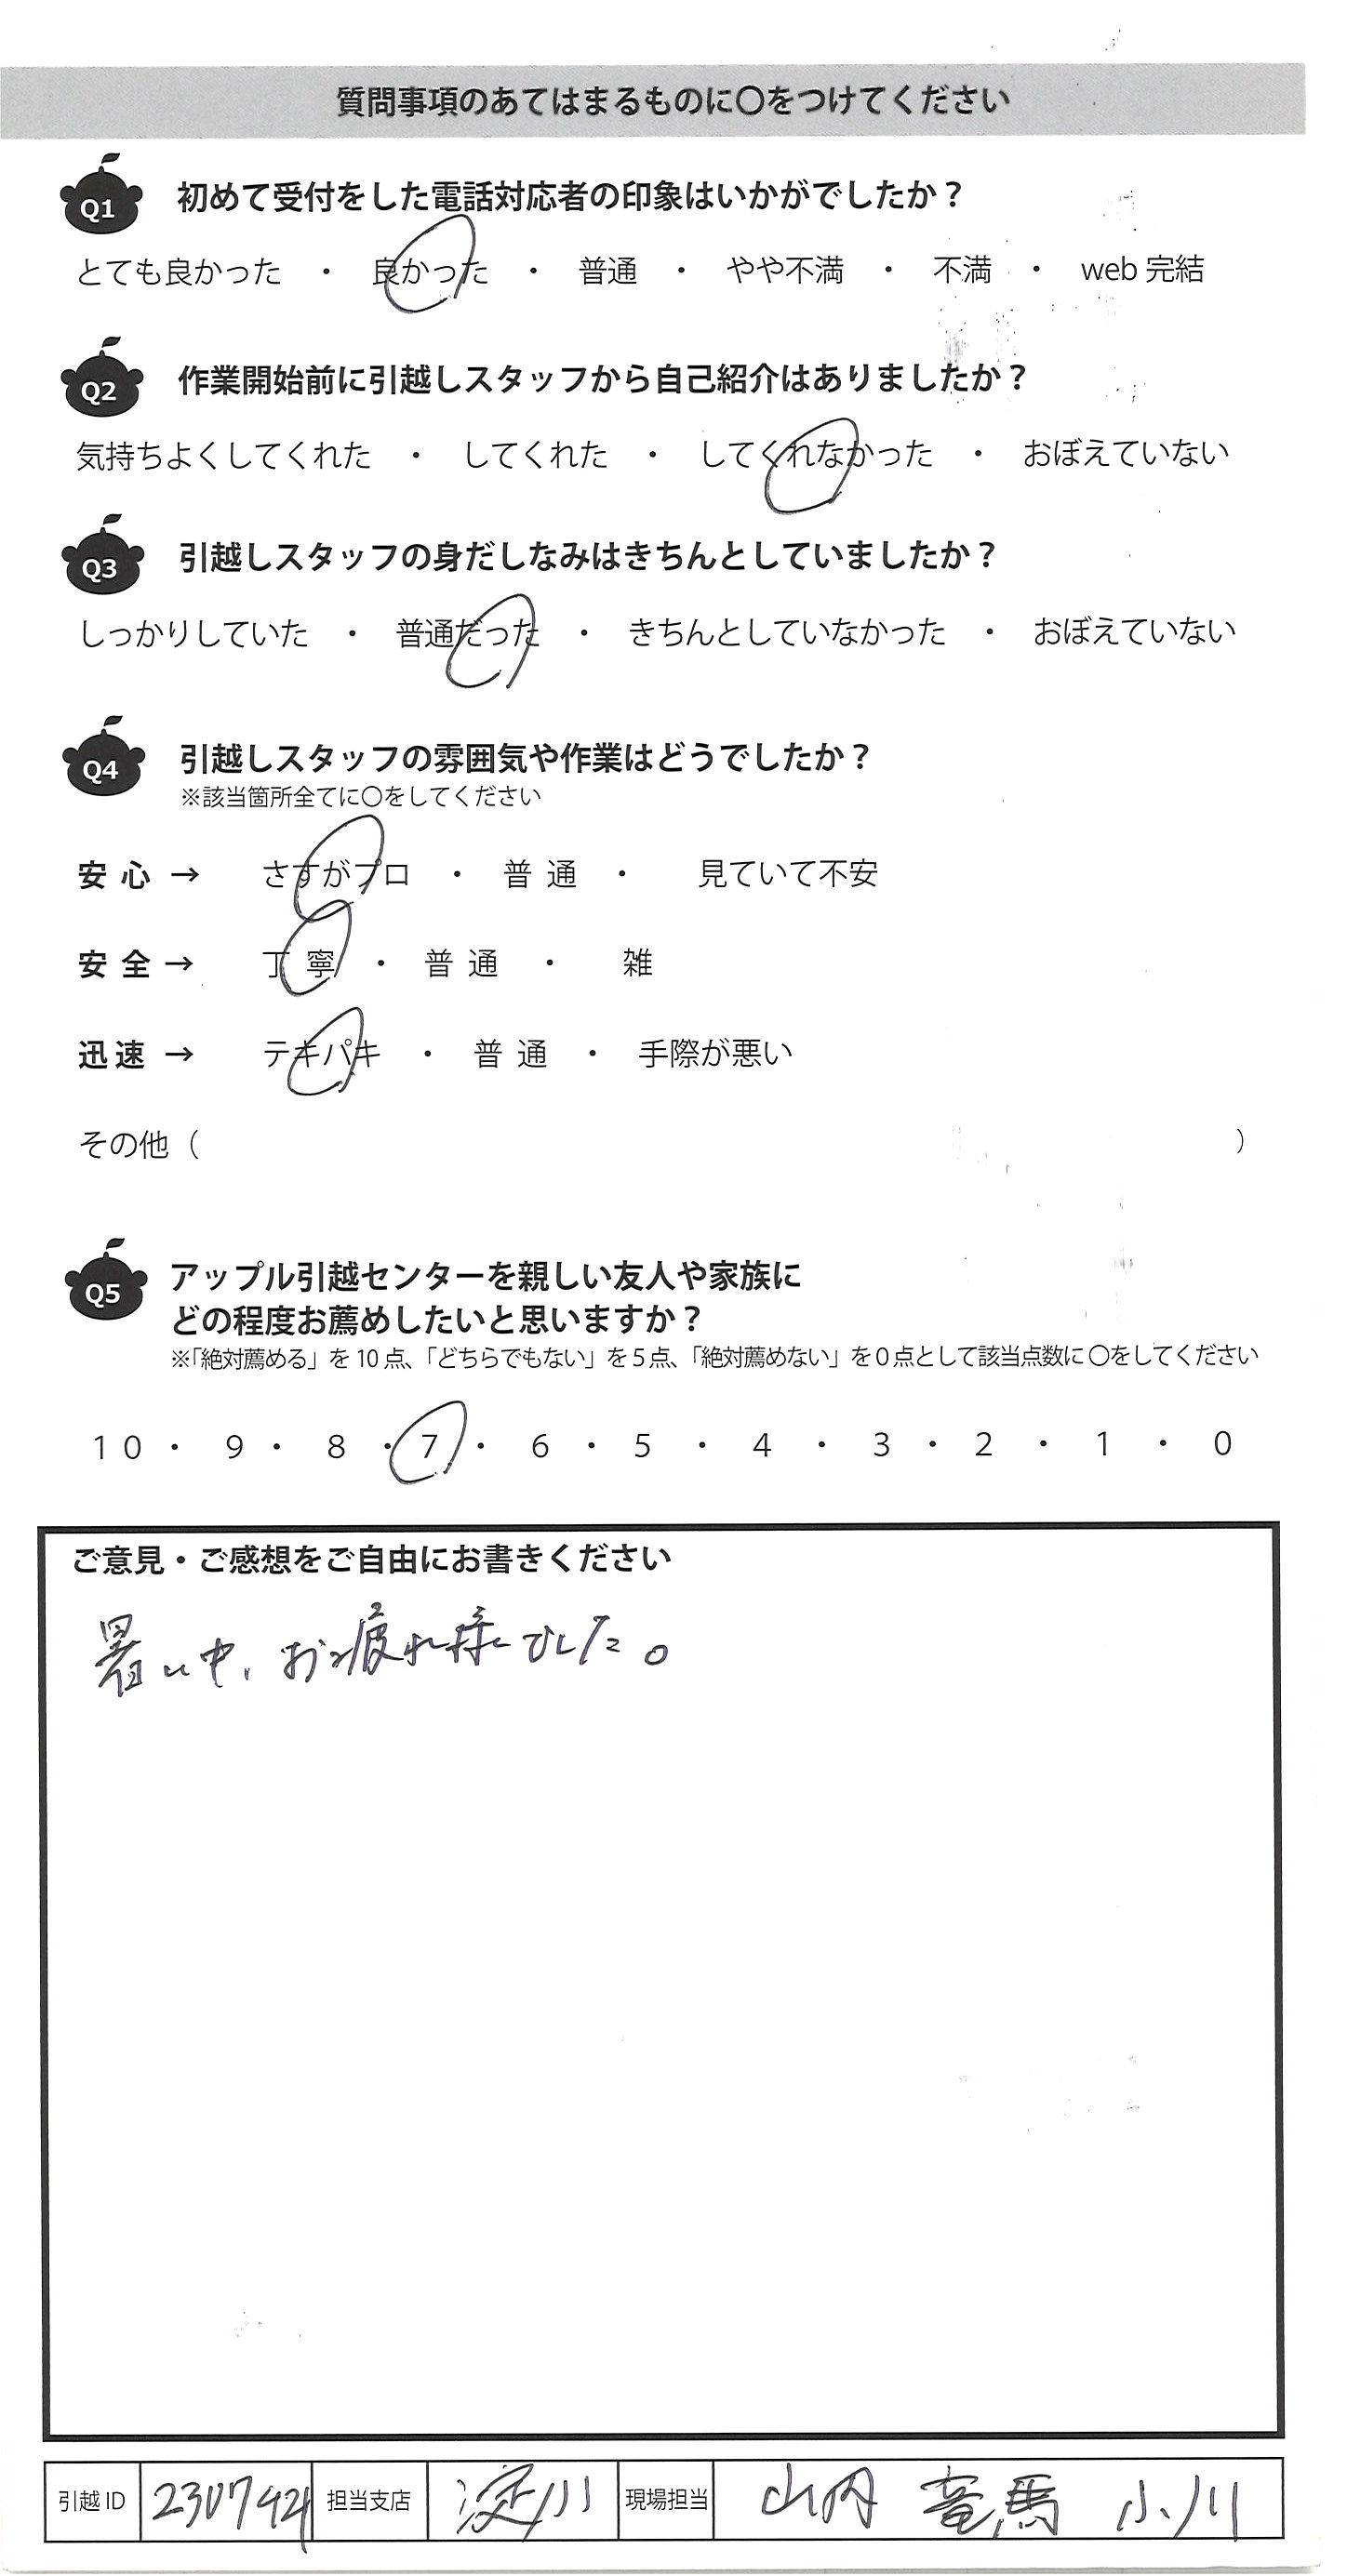 質問事項のあてはまるものに〇をつけてください
Q1 初めて受付をした電話対応者の印象はいかがでしたか？
とても良かった ・ 良かった ・ 普通 ・ やや不満 ・ 不満 ・ web 完結
Q2 作業開始前に引越しスタッフから自己紹介はありましたか？
気持ちよくしてくれた ・ してくれた ・ してくれなかった ・ おぼえていない
Q3 引越しスタッフの身だしなみはきちんとしていましたか？
しっかりしていた ・ 普通だった ・ きちんとしていなかった ・ おぼえていない
Q4 引越しスタッフの雰囲気や作業はどうでしたか？
※該当箇所全てに〇をしてください
安心 → さすがプロ ・ 普通 ・ 見ていて不安
安全 → 丁寧 ・ 普通 ・ 雑
迅速 → テキパキ ・ 普通 ・ 手際が悪い
その他（ ）
Q5 アップル引越センターを親しい友人や家族に
どの程度お薦めしたいと思いますか？
※「絶対薦める」を 10 点、「どちらでもない」を 5 点、「絶対薦めない」を 0 点として該当点数に 〇をしてください
10 ・ 9 ・ 8 ・ 7 ・ 6 ・ 5 ・ 4 ・ 3 ・ 2 ・ 1 ・ 0
ご意見・ご感想をご自由にお書きください
暑い中、お疲れ様でした。
引越 ID 担当支店 淀川 現場担当 山内 竜馬 小川